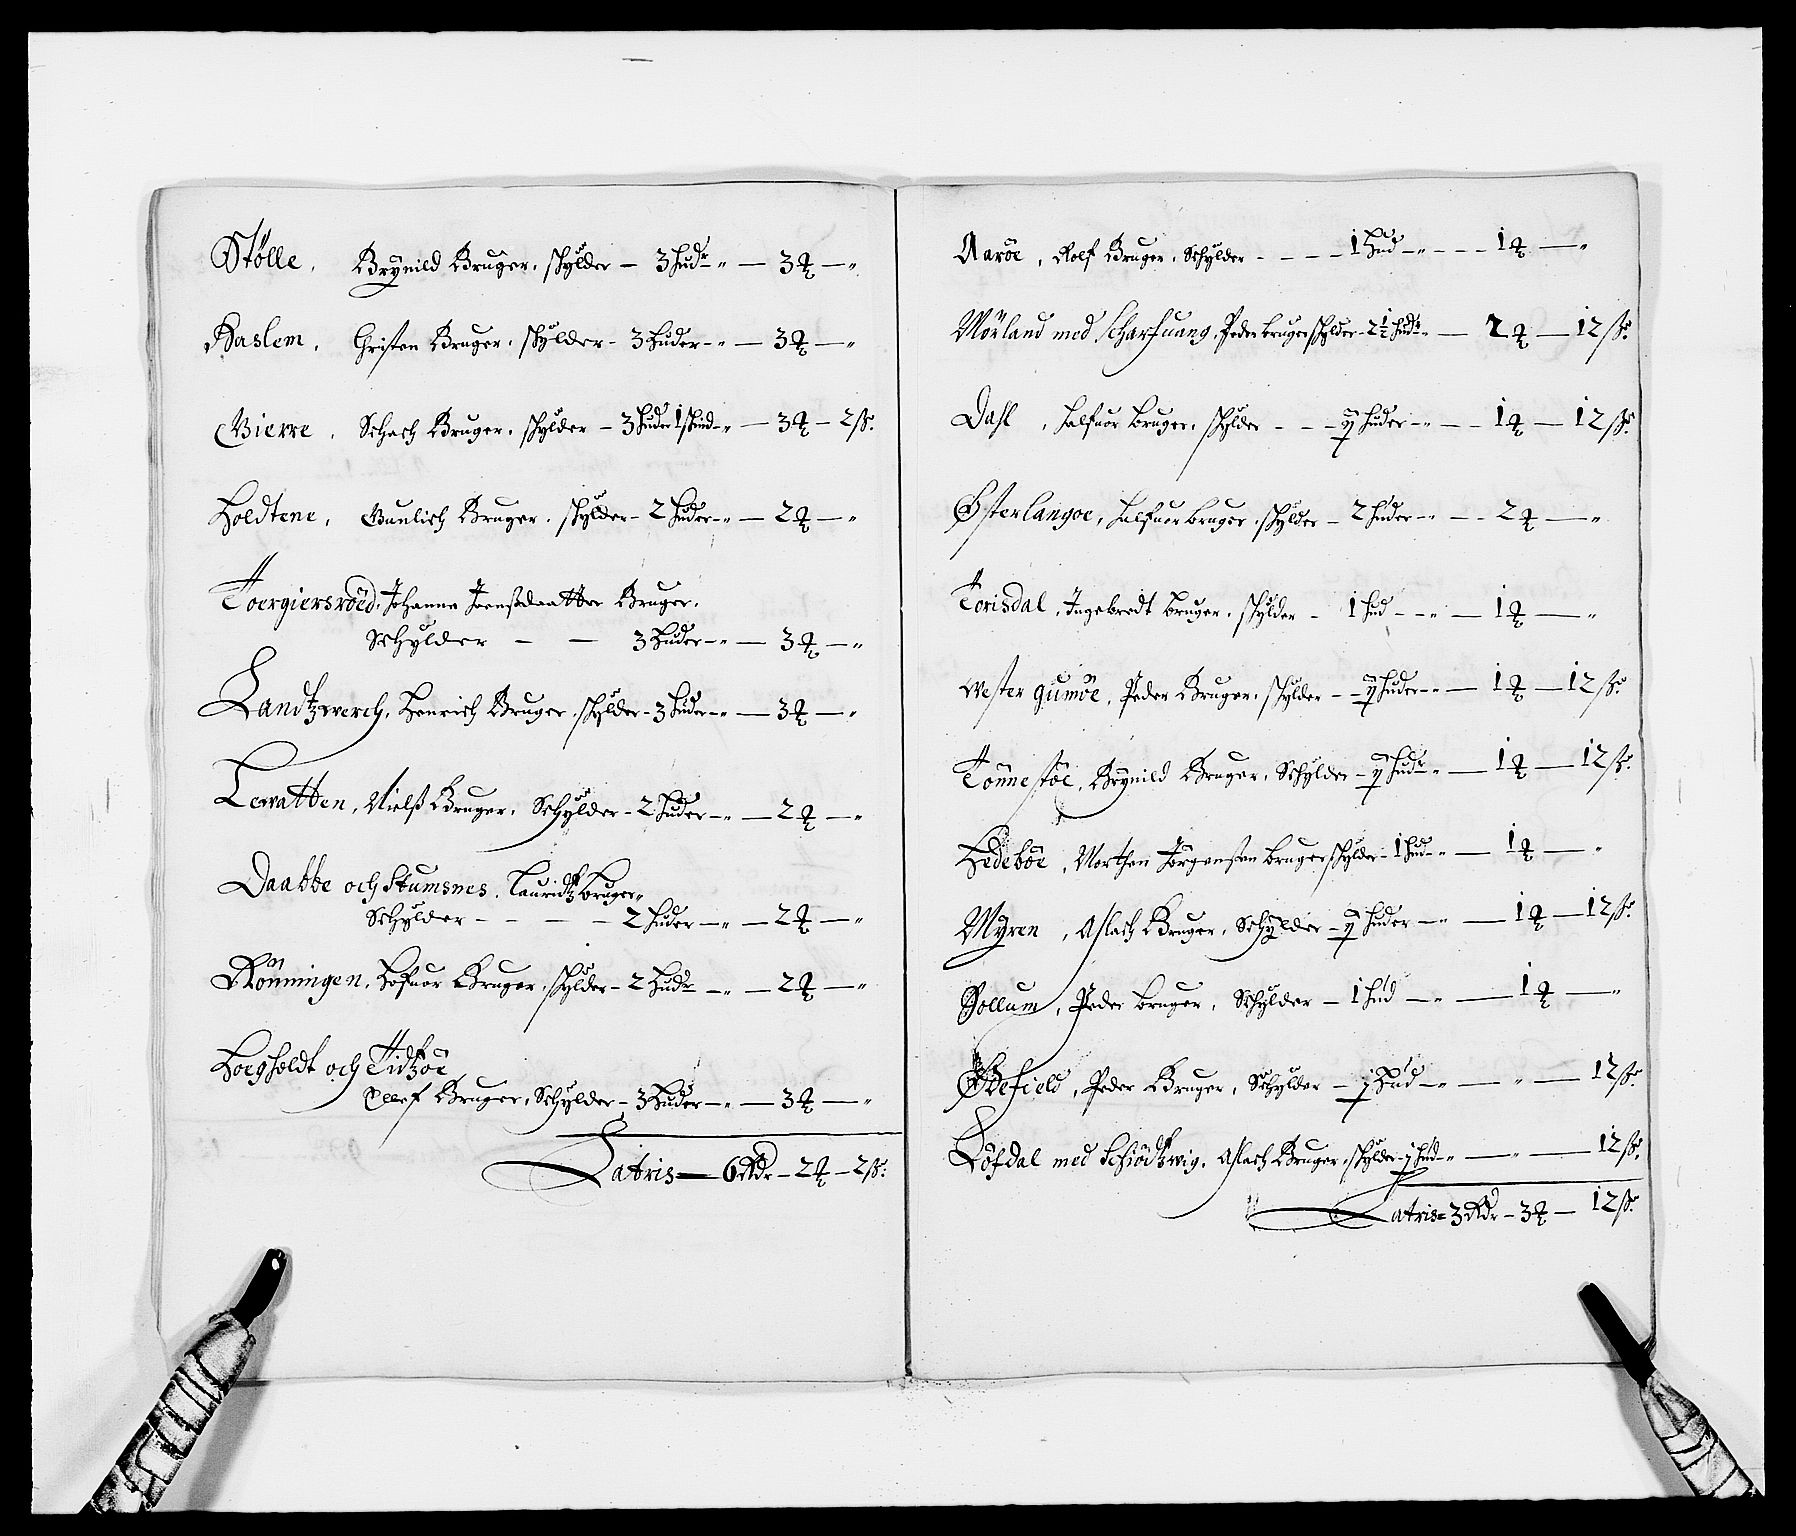 Stølle, Brÿnild Bruger, schÿlder – 3 hudr „ — 3 ꝗ — „
Haslem, Christen Bruger, schÿlder – 3 Huder – „ — 3 ꝗ — „
Bierre, Schach Bruger, schÿlder – 3 huder 1 skind – „ — 3 ꝗ – 2 ß.
Holdtene, Gunlich Bruger, schÿlder – 2 huder – „ — 2 ꝗ — „
Toergiersröed, Johanne Joensdaatter Bruger,
Schÿlder – – 3 Huder – „ — 3 ꝗ — „
Landtzwerch, Henrich Bruger, schÿlder – 3 huder – „ — 3 ꝗ — „
Lewatten, Nielß Bruger, Schÿlder – 2 huder – „ — 2 ꝗ — „
Daabbe och Stumsnes, Lauridtz bruger „
Schÿlder – – – – 2 huder – „ — 2 ꝗ — „
Rönningen, Hofuor Bruger, schÿlder – 2 Hudr – „ — 2 ꝗ — „
Hoegholdt och Tidtzöe
Ellef Bruger, Schÿlder – 3 Huder – „ — 3 ꝗ — „
Latris — 6 Rdr – 2 ꝗ – 2 ß.
Aaröe, Rolf Bruger, Schÿlder – – – – 1 Hud – „ – – – 1 ꝗ — „
Mörland med Scharfuang, Peder bruger schÿlder – 2 1/2 hudr „ — 2 ꝗ — 12 ß.
Dahl, Halfuor bruger, schÿlder – – – ÿ huder – „ – – 1 ꝗ — 12 ß.
Østerlangoe, Halfuor bruger, schÿlder – 2 huder – „ – – 2 ꝗ — „
Torisdal, Ingebredt bruger, schÿlder – 1 hud – – „ — 1 ꝗ — „
Wester gumöe, Peder Bruger, schÿlder – – ÿ huder – „ — 1 ꝗ — 12 ß.
Tönnestöe, Brÿnild Bruger, Schÿlder – ÿ hudr „ — 1 ꝗ — 12 ß.
Hedeböe, Morthen Jörgensen bruger schÿlder – 1 hud – „ — 1 ꝗ — „
Mÿren, Aslach Bruger, Schÿlder – ÿ huder – „ — 1 ꝗ — 12 ß.
Gollum, Peder bruger, Schÿlder – 1 hud – „ — 1 ꝗ — „
Peder Bruger, Schÿlder – ɉ Hud – „ — „ — 12 ß.
Löfdal med Schiödtzwig, Aslach Bruger, schÿlder – ɉ hud – „ — „ — 12 ß.
Latris = 3 Rdr – 3 ꝗ — 12 ß.